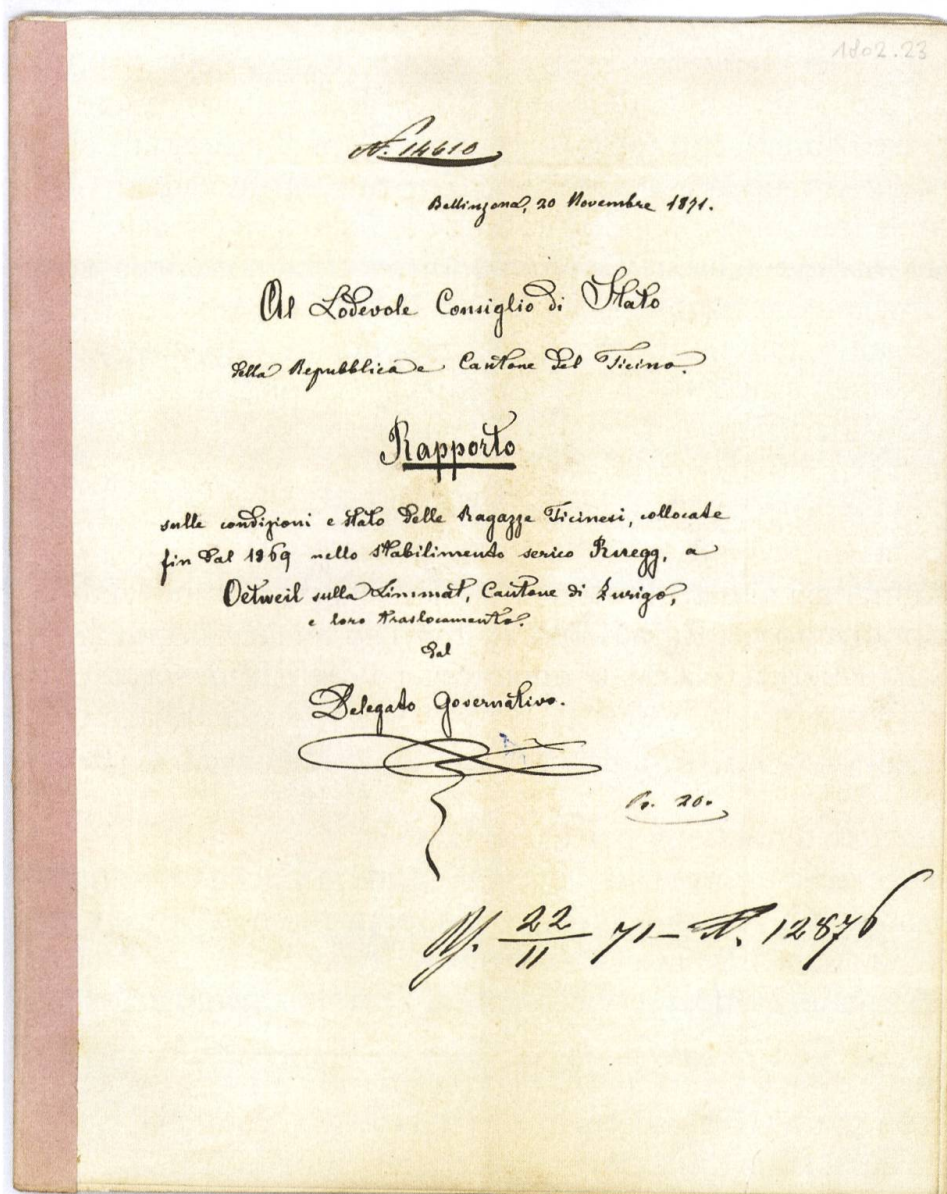 1802.23
N. 14610
Bellinzona, 20 Novembre 1871.
Al Lodevole Consiglio di Stato
della Repubblica e Cantone del Ticino.
Rapporto
sulle condizioni e stato delle Ragazze Ticinesi, collocate
fin dal 1869 nello stabilimento serico Ruegg, a
Oetweil sulla Limmat, Cantone di Zurigo,
e loro traslocamento.
Dal
Delegato Governativo.
20.
22/11 71 – N. 12876